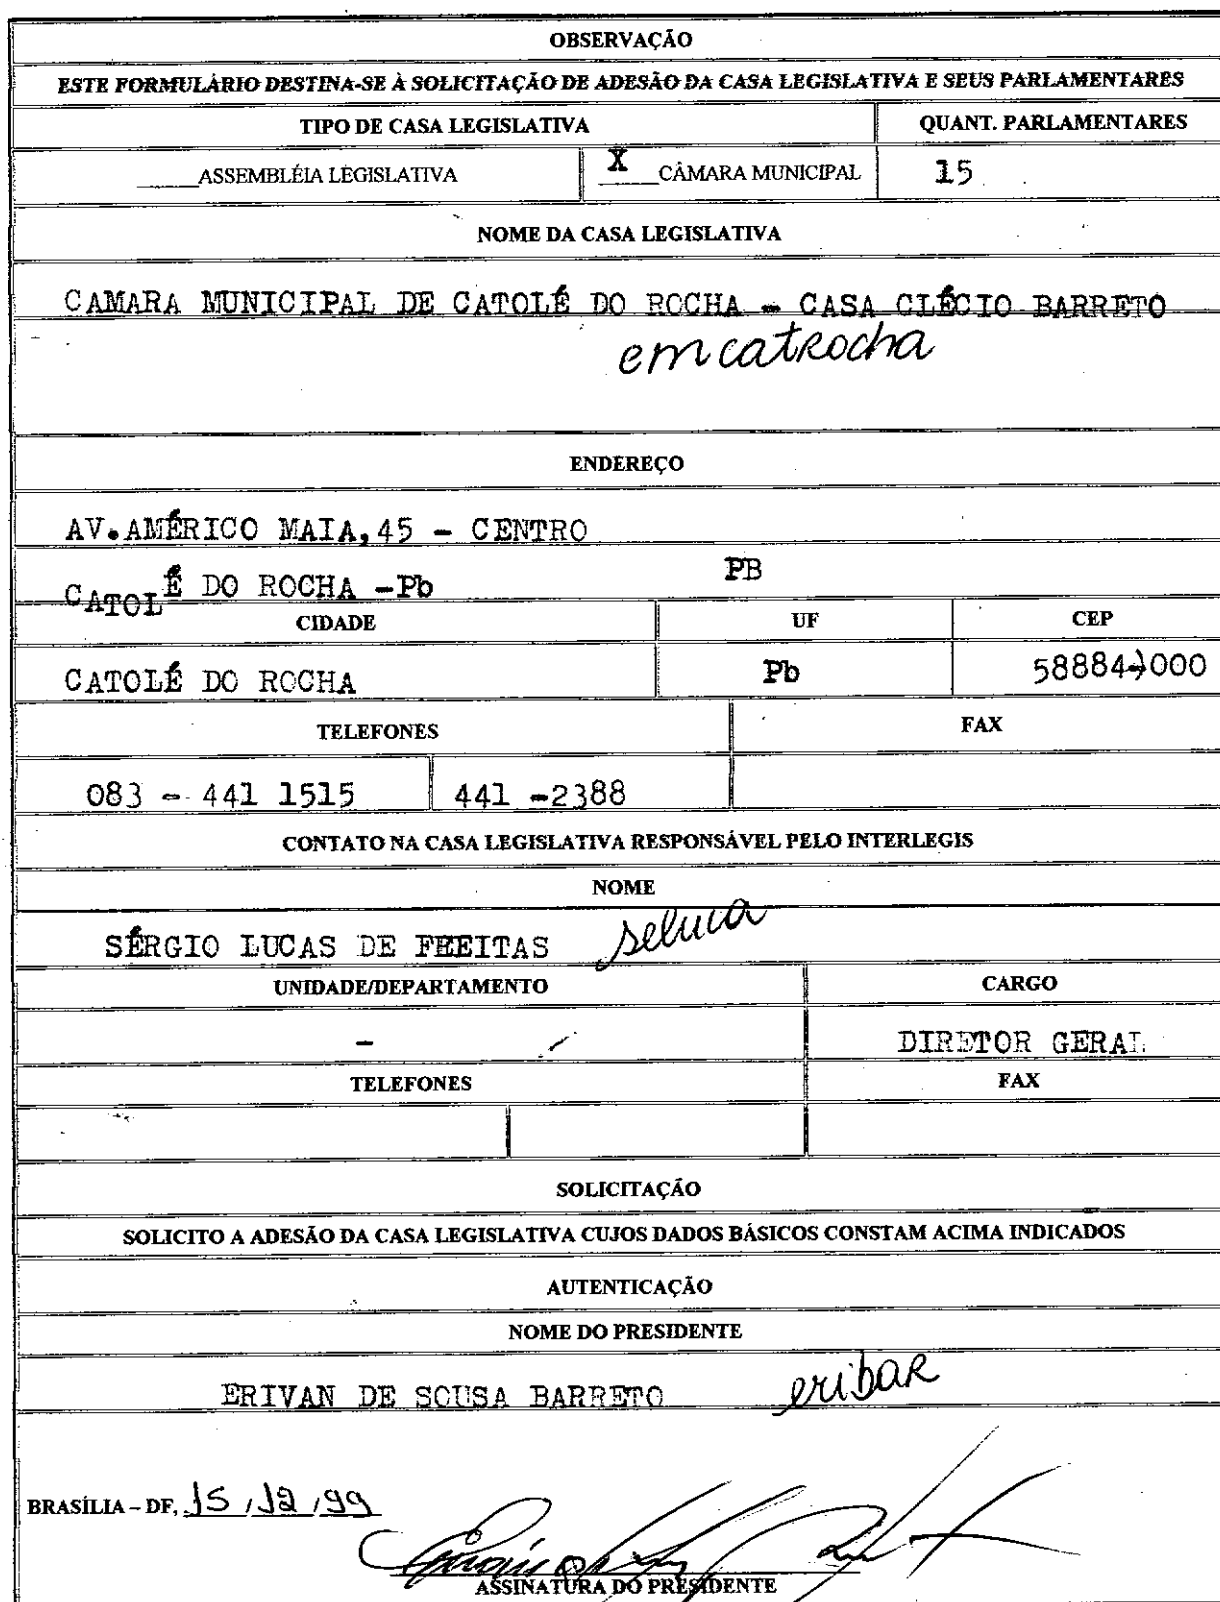 OBSERVAÇÃO
ESTE FORMULÁRIO DESTINA-SE À SOLICITAÇÃO DE ADESÃO DA CASA LEGISLATIVA E SEUS PARLAMENTARES
TIPO DE CASA LEGISLATIVA QUANT. PARLAMENTARES
_____ASSEMBLÉIA LEGISLATIVA X_____CÂMARA MUNICIPAL 15
NOME DA CASA LEGISLATIVA
CAMARA MUNICIPAL DE CATOLÉ DO ROCHA - CASA CLÉCIO BARRETO
emcatrocha
ENDEREÇO
AV.AMÉRICO MAIA,45 - CENTRO
CATOLÉ DO ROCHA -Pb PB
CIDADE UF CEP
CATOLÉ DO ROCHA Pb 58884-000
TELEFONES FAX
083 - 441 1515 441 -2388
CONTATO NA CASA LEGISLATIVA RESPONSÁVEL PELO INTERLEGIS
NOME
SÉRGIO LUCAS DE FEEITAS seluca
UNIDADE/DEPARTAMENTO CARGO
- DIRETOR GERAL
TELEFONES FAX
SOLICITAÇÃO
SOLICITO A ADESÃO DA CASA LEGISLATIVA CUJOS DADOS BÁSICOS CONSTAM ACIMA INDICADOS
AUTENTICAÇÃO
NOME DO PRESIDENTE
ERIVAN DE SOUSA BARRETO eribar
BRASÍLIA – DF, 15 / 12 / 99
ASSINATURA DO PRESIDENTE